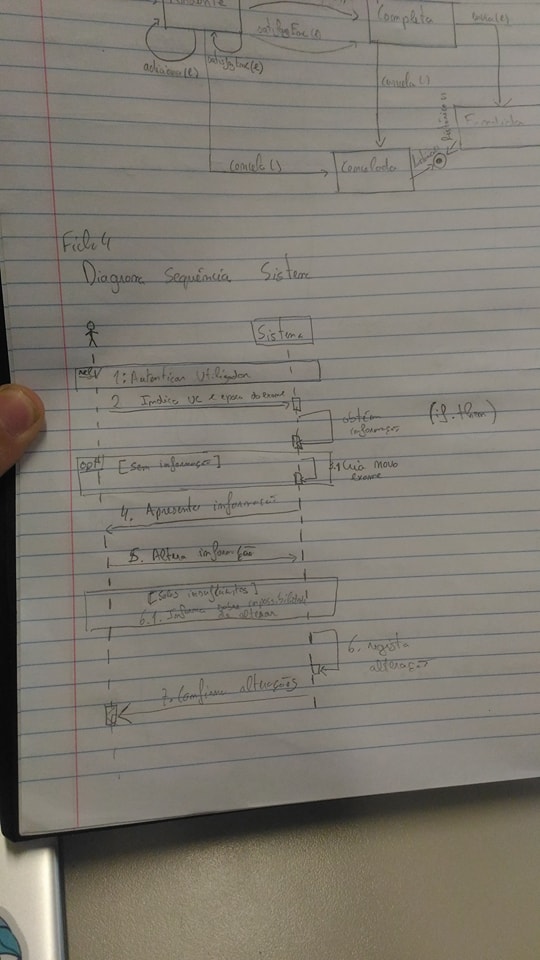 Completa
adiciona(e)
cancela()
cancela()
Cancelada
Ficha 4
Diagrama Sequência Sistema
Sistema
ref
1: Autenticar Utilizador
2. Indica UC e epoca do exame
obtém
informação
(if.then)
opt
[sem informação]
cria novo
exame
4. Apresenta informação
5. Altera informação
[salas insuficientes]
6.1. Informa sobre impossibilidade
de alterar
6. regista
alteração
7. Confirma alterações